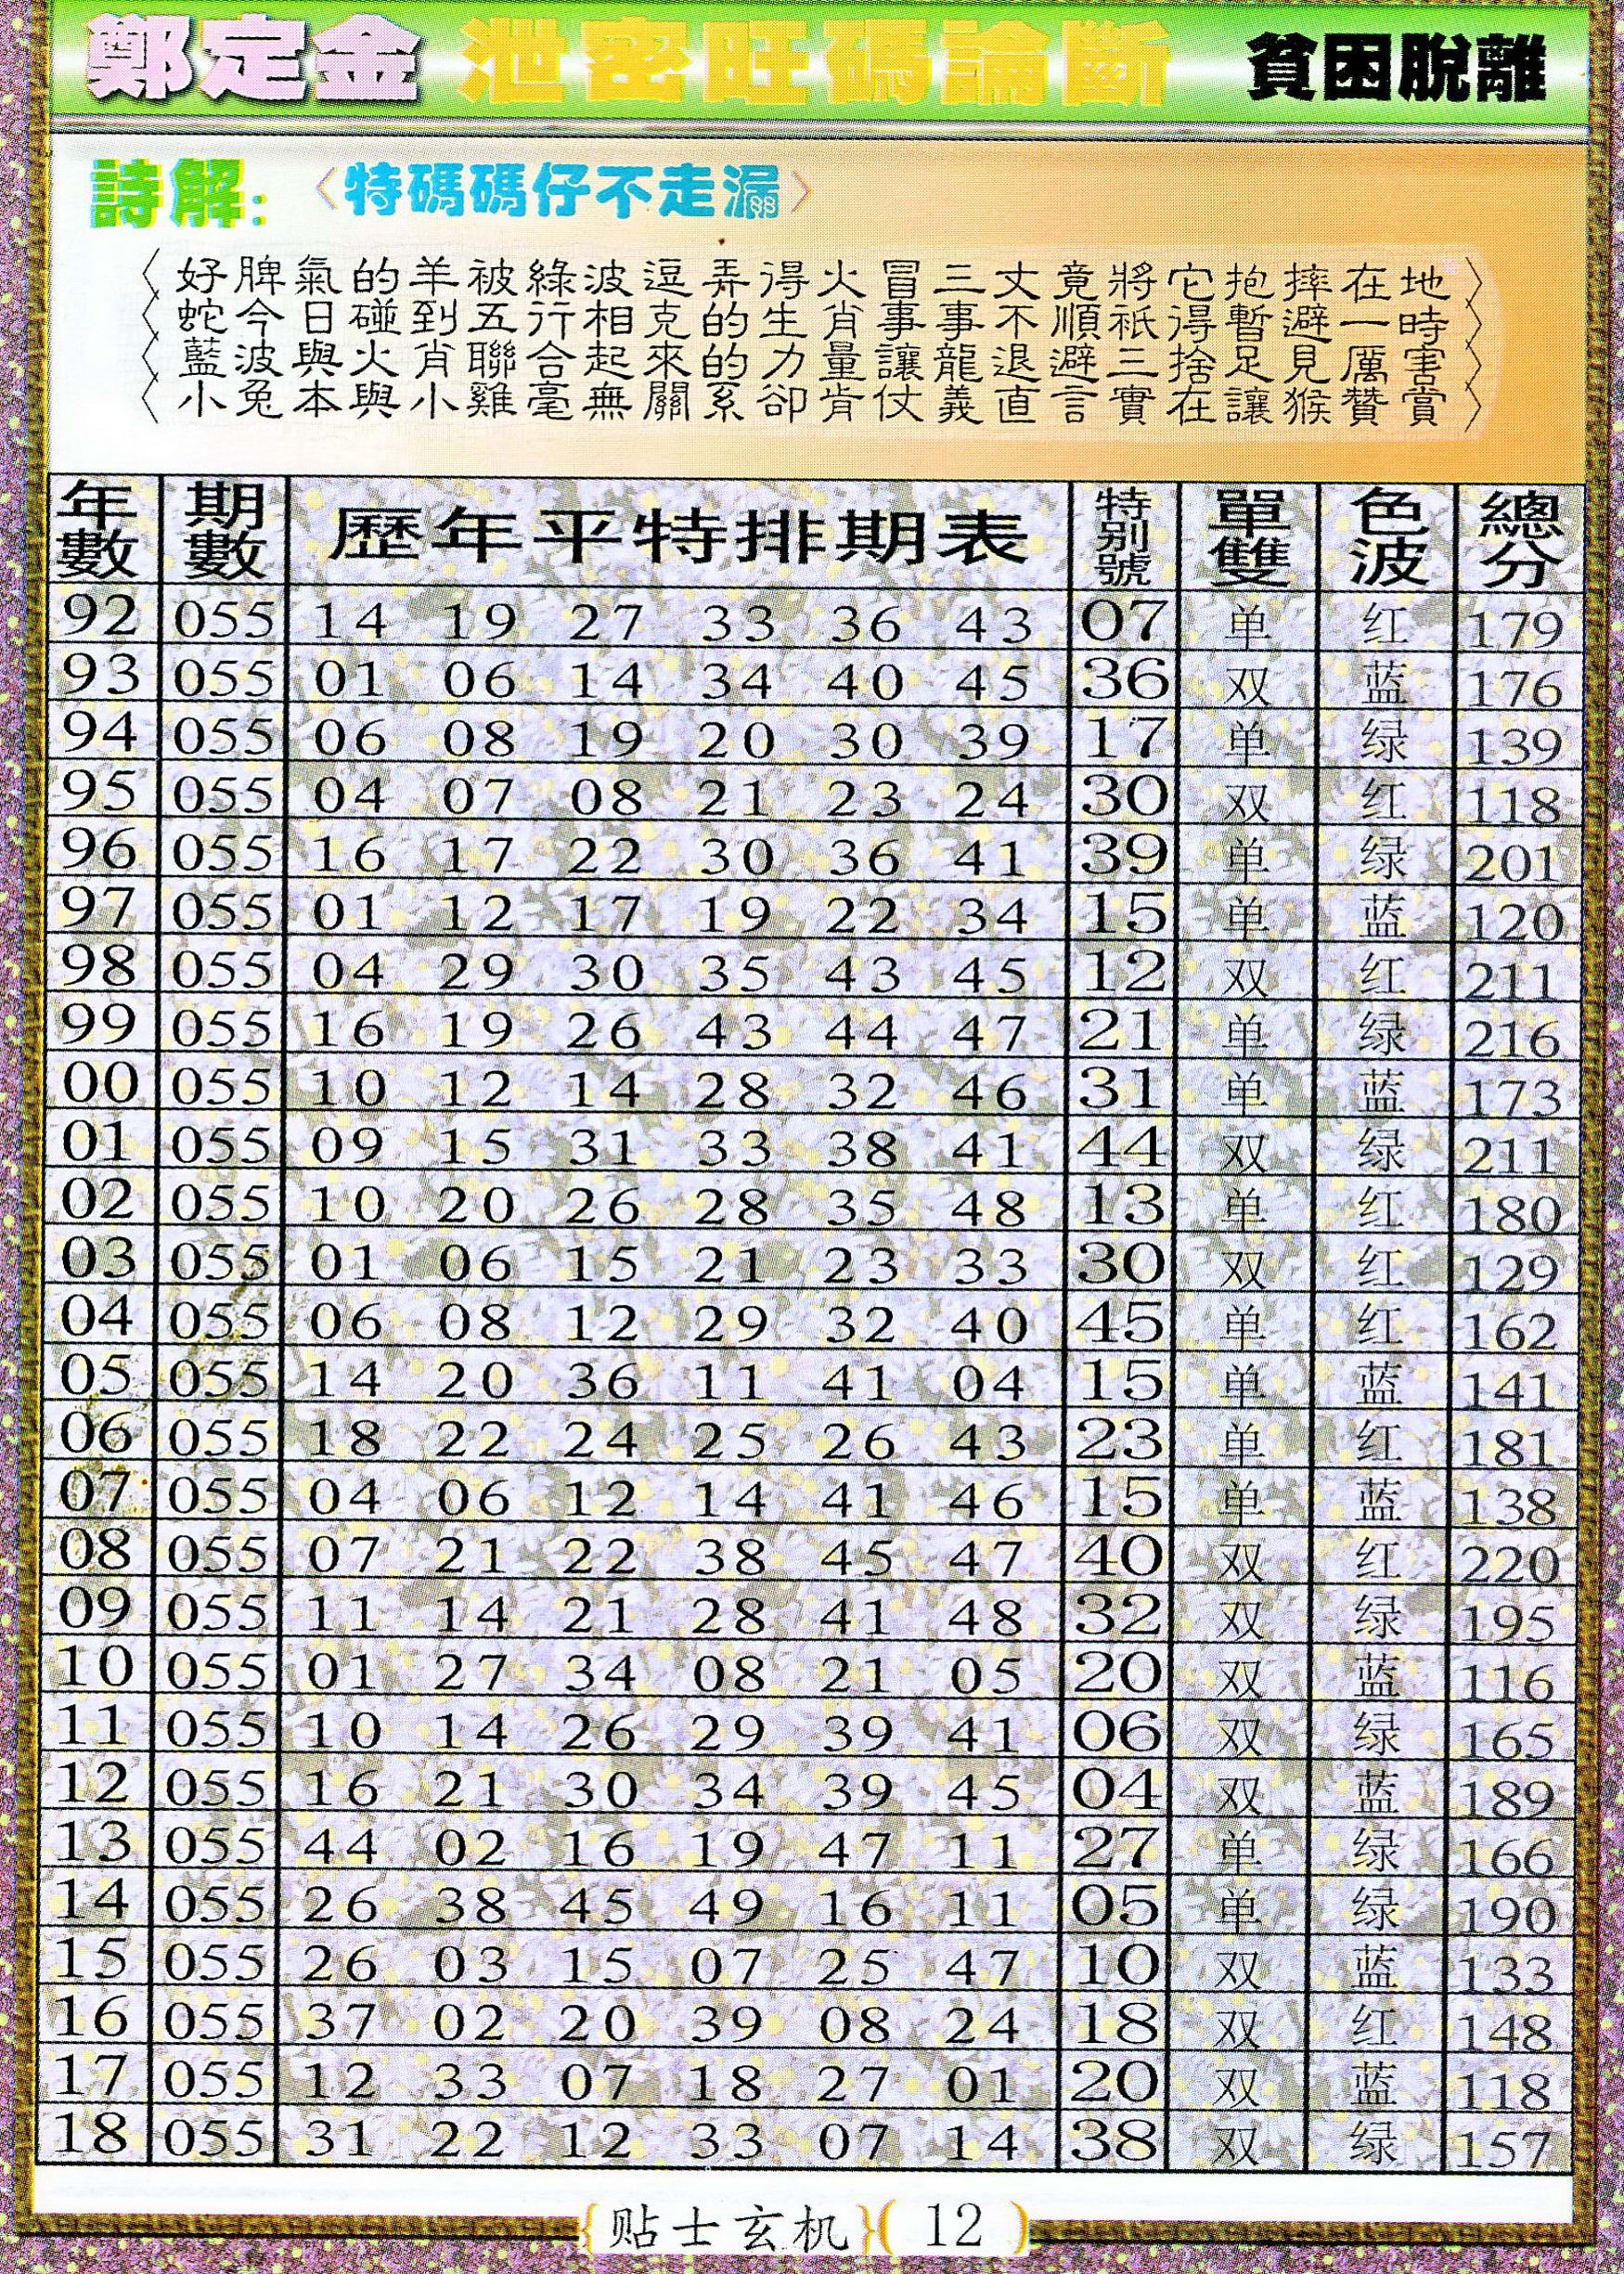 鄭定金 泄密旺碼論斷 貧困脫離
詩解: 〈特碼碼仔不走漏〉
好脾氣的羊被綠波逗弄得火冒三丈竟將它抱摔在地
蛇今日碰到五行相克的生肖事事不順祇得暫避一時
藍波與火肖聯合起來的力量讓龍退避三捨足見厲害
小兔本與小雞毫無關系卻肯仗義直言實在讓猴贊賞
年數 期數 歷年平特排期表 特别號 單雙 色波 總分
92 055 14 19 27 33 36 43 07 单 红 179
93 055 01 06 14 34 40 45 36 双 蓝 176
94 055 06 08 19 20 30 39 17 单 绿 139
95 055 04 07 08 21 23 24 30 双 红 118
96 055 16 17 22 30 36 41 39 单 绿 201
97 055 01 12 17 19 22 34 15 单 蓝 120
98 055 04 29 30 35 43 45 12 双 红 211
99 055 16 19 26 43 44 47 21 单 绿 216
00 055 10 12 14 28 32 46 31 单 蓝 173
01 055 09 15 31 33 38 41 44 双 绿 211
02 055 10 20 26 28 35 48 13 单 红 180
03 055 01 06 15 21 23 33 30 双 红 129
04 055 06 08 12 29 32 40 45 单 红 162
05 055 14 20 36 11 41 04 15 单 蓝 141
06 055 18 22 24 25 26 43 23 单 红 181
07 055 04 06 12 14 41 46 15 单 蓝 138
08 055 07 21 22 38 45 47 40 双 红 220
09 055 11 14 21 28 41 48 32 双 绿 195
10 055 01 27 34 08 21 05 20 双 蓝 116
11 055 10 14 26 29 39 41 06 双 绿 165
12 055 16 21 30 34 39 45 04 双 蓝 189
13 055 44 02 16 19 47 11 27 单 绿 166
14 055 26 38 45 49 16 11 05 单 绿 190
15 055 26 03 15 07 25 47 10 双 蓝 133
16 055 37 02 20 39 08 24 18 双 红 148
17 055 12 33 07 18 27 01 20 双 蓝 118
18 055 31 22 12 33 07 14 38 双 绿 157
{贴士玄机}( 12 )